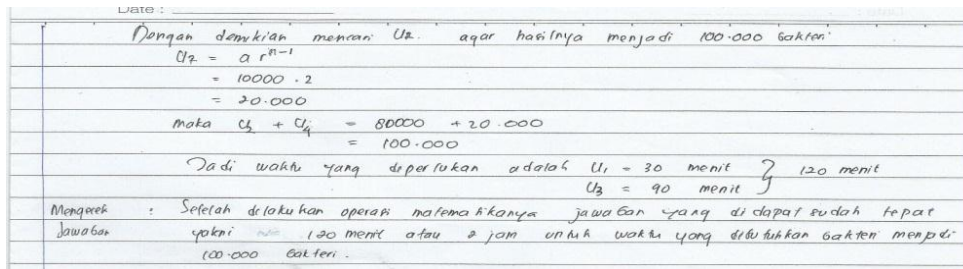 Date :
Dengan demikian mencari U2 agar hasilnya menjadi 100.000 bakteri
U2 = a r^n-1
= 10000 . 2
= 20.000
maka U3 + U4 = 80000 + 20.000
= 100.000
Jadi waktu yang diperlukan adalah U1 = 30 menit } 120 menit
U3 = 90 menit
Mengecek : Setelah dilakukan operasi matematikanya jawaban yang di dapat sudah tepat
Jawaban yakni 120 menit atau 2 jam untuk waktu yang dibutuhkan bakteri menjadi
100.000 bakteri.